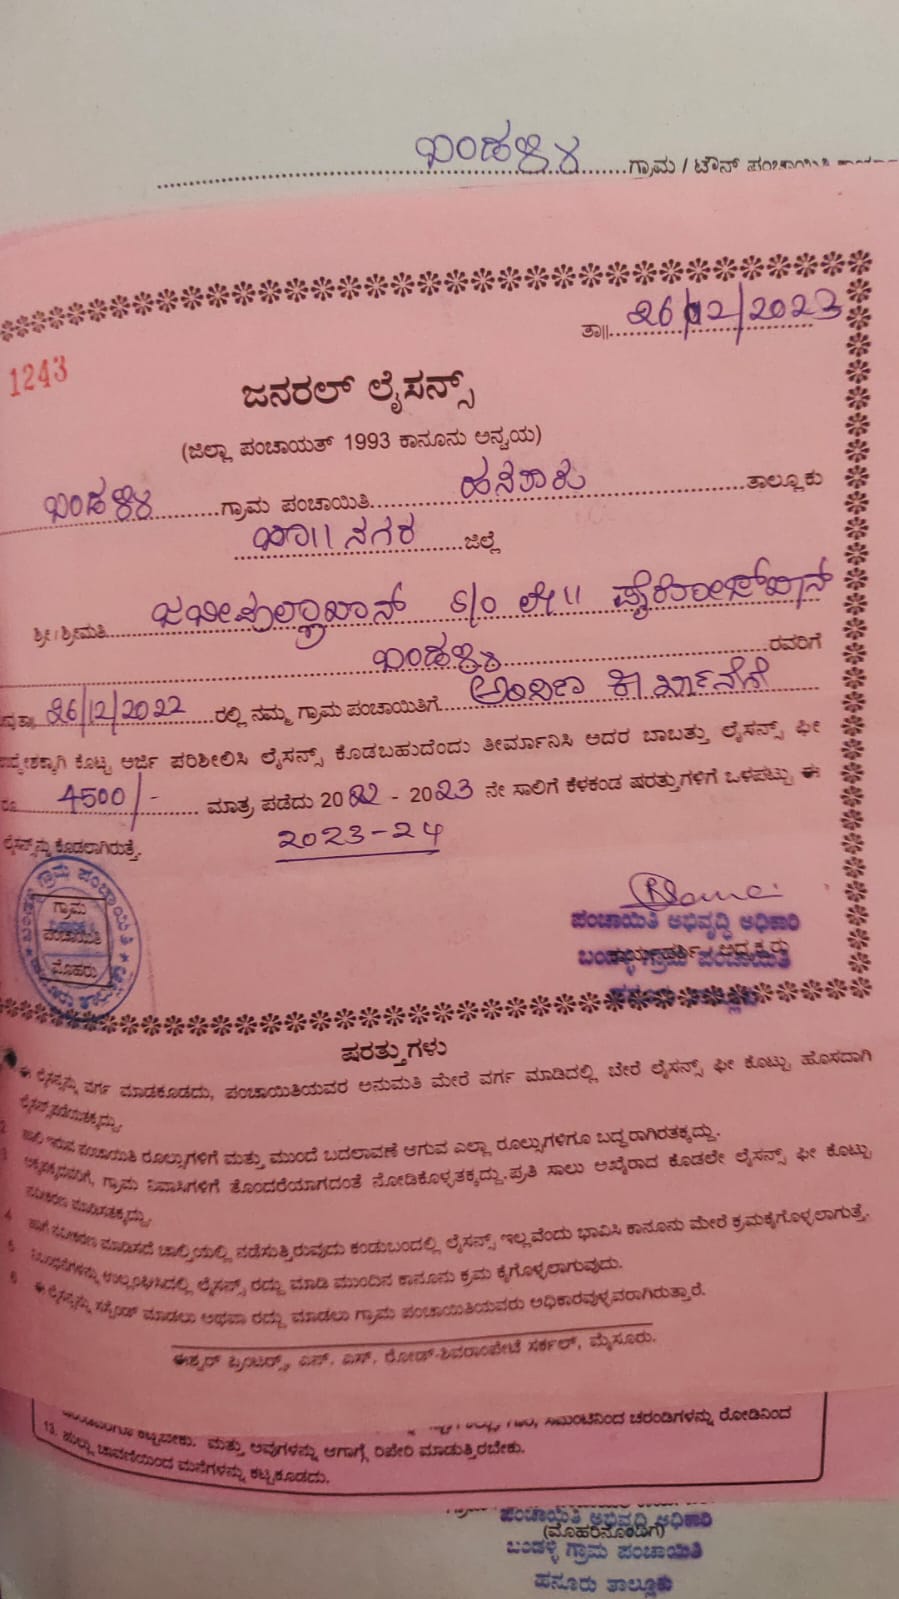 ಬಂಡಳ್ಳಿ ಗ್ರಾಮ / ಟೌನ್ ಪಂಚಾಯಿತಿ
ತಾ|| 26/12/2023
1243
ಜನರಲ್ ಲೈಸನ್ಸ್
(ಜಿಲ್ಲಾ ಪಂಚಾಯತ್ 1993 ಕಾನೂನು ಅನ್ವಯ)
ಬಂಡಳ್ಳಿ ಗ್ರಾಮ ಪಂಚಾಯಿತಿ ಹನೂರು ತಾಲ್ಲೂಕು
ಚಾ|| ನಗರ ಜಿಲ್ಲೆ
ಶ್ರೀ/ಶ್ರೀಮತಿ S/o ಲೇ||
ಬಂಡಳ್ಳಿ ರವರಿಗೆ
26/12/2022 ರಲ್ಲಿ ನಮ್ಮ ಗ್ರಾಮ ಪಂಚಾಯಿತಿಗೆ
ಉದ್ದೇಶಕ್ಕಾಗಿ ಕೊಟ್ಟ ಅರ್ಜಿ ಪರಿಶೀಲಿಸಿ ಲೈಸನ್ಸ್ ಕೊಡಬಹುದೆಂದು ತೀರ್ಮಾನಿಸಿ ಅದರ ಬಾಬತ್ತು ಲೈಸನ್ಸ್ ಫೀ
ರೂ 4500/- ಮಾತ್ರ ಪಡೆದು 2022 - 2023 ನೇ ಸಾಲಿಗೆ ಕೆಳಕಂಡ ಷರತ್ತುಗಳಿಗೆ ಒಳಪಟ್ಟು ಈ
ಲೈಸನ್ಸ್‌ನ್ನು ಕೊಡಲಾಗಿರುತ್ತೆ. 2023-24
ಗ್ರಾಮ
ಪಂಚಾಯಿತಿ
ಮೊಹರು
ಪಂಚಾಯಿತಿ ಅಭಿವೃದ್ಧಿ ಅಧಿಕಾರಿ
ಬಂಡಳ್ಳಿ ಗ್ರಾಮ ಪಂಚಾಯಿತಿ
ಷರತ್ತುಗಳು
ಈ ಲೈಸನ್ಸನ್ನು ವರ್ಗ ಮಾಡಕೂಡದು, ಪಂಚಾಯಿತಿಯವರ ಅನುಮತಿ ಮೇರೆ ವರ್ಗ ಮಾಡಿದಲ್ಲಿ ಬೇರೆ ಲೈಸನ್ಸ್ ಫೀ ಕೊಟ್ಟು ಹೊಸದಾಗಿ
ಲೈಸನ್ಸ್‌ಪಡೆಯತಕ್ಕದ್ದು.
2 ಹಾಲಿ ಇರುವ ಪಂಚಾಯಿತಿ ರೂಲ್ಸುಗಳಿಗೆ ಮತ್ತು ಮುಂದೆ ಬದಲಾವಣೆ ಆಗುವ ಎಲ್ಲಾ ರೂಲ್ಸುಗಳಿಗೂ ಬದ್ಧರಾಗಿರತಕ್ಕದ್ದು.
3 ಅಕ್ಕಪಕ್ಕದವರಿಗೆ, ಗ್ರಾಮ ನಿವಾಸಿಗಳಿಗೆ ತೊಂದರೆಯಾಗದಂತೆ ನೋಡಿಕೊಳ್ಳತಕ್ಕದ್ದು. ಪ್ರತಿ ಸಾಲು ಆಖೈರಾದ ಕೂಡಲೇ ಲೈಸನ್ಸ್ ಫೀ ಕೊಟ್ಟು
ನವೀಕರಣ ಮಾಡಿಸತಕ್ಕದ್ದು.
4 ಹಾಗೆ ನವೀಕರಣ ಮಾಡಿಸದೆ ಚಾಲ್ತಿಯಲ್ಲಿ ನಡೆಸುತ್ತಿರುವುದು ಕಂಡುಬಂದಲ್ಲಿ ಲೈಸನ್ಸ್ ಇಲ್ಲವೆಂದು ಭಾವಿಸಿ ಕಾನೂನು ಮೇರೆ ಕ್ರಮಕೈಗೊಳ್ಳಲಾಗುತ್ತೆ.
5 ನಿಬಂಧನೆಗಳನ್ನು ಉಲ್ಲಂಘಿಸಿದಲ್ಲಿ ಲೈಸನ್ಸ್ ರದ್ದು ಮಾಡಿ ಮುಂದಿನ ಕಾನೂನು ಕ್ರಮ ಕೈಗೊಳ್ಳಲಾಗುವುದು.
6 ಈ ಲೈಸನ್ಸನ್ನು ಸಸ್ಪೆಂಡ್ ಮಾಡಲು ಅಥವಾ ರದ್ದು ಮಾಡಲು ಗ್ರಾಮ ಪಂಚಾಯಿತಿಯವರು ಅಧಿಕಾರವುಳ್ಳವರಾಗಿರುತ್ತಾರೆ.
ಈಶ್ವರ್ ಪ್ರಿಂಟರ್ಸ್, ಎನ್. ಎಸ್. ರೋಡ್-ಶಿವರಾಂಪೇಟೆ ಸರ್ಕಲ್, ಮೈಸೂರು.
ಚರಂಡಿಗಳನ್ನು ರೋಡಿನಿಂದ
ಕಟ್ಟಬೇಕು. ಮತ್ತು ಅವುಗಳನ್ನು ಆಗಾಗ್ಗೆ ರಿಪೇರಿ ಮಾಡುತ್ತಿರಬೇಕು.
13. ಹುಲ್ಲು ಚಾವಣಿಯಿಂದ ಮನೆಗಳನ್ನು ಕಟ್ಟಕೂಡದು.
ಪಂಚಾಯಿತಿ ಅಭಿವೃದ್ಧಿ ಅಧಿಕಾರಿ
(ಮೊಹರಿನೊಂದಿಗೆ)
ಬಂಡಳ್ಳಿ ಗ್ರಾಮ ಪಂಚಾಯಿತಿ
ಹನೂರು ತಾಲ್ಲೂಕು